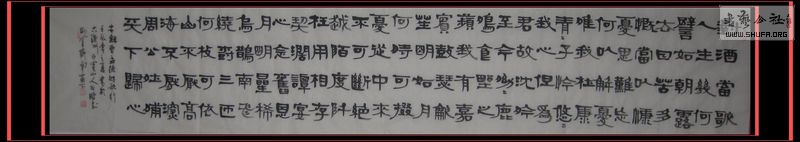 對酒當歌
人生幾何
譬如朝露
去日苦多
慨當以慷
憂思難忘
何以解憂
唯有杜康
青青子衿
悠悠我心
但爲君故
沈吟至今
呦呦鹿鳴
食野之蘋
我有嘉賓
鼓瑟吹笙
明明如月
何時可掇
憂從中來
不可斷絕
越陌度阡
枉用相存
契闊談讌
心念舊恩
月明星稀
烏鵲南飛
繞樹三匝
何枝可依
山不厭高
海不厭深
周公吐哺
天下歸心
書法公社
WWW.SHUFA.ORG